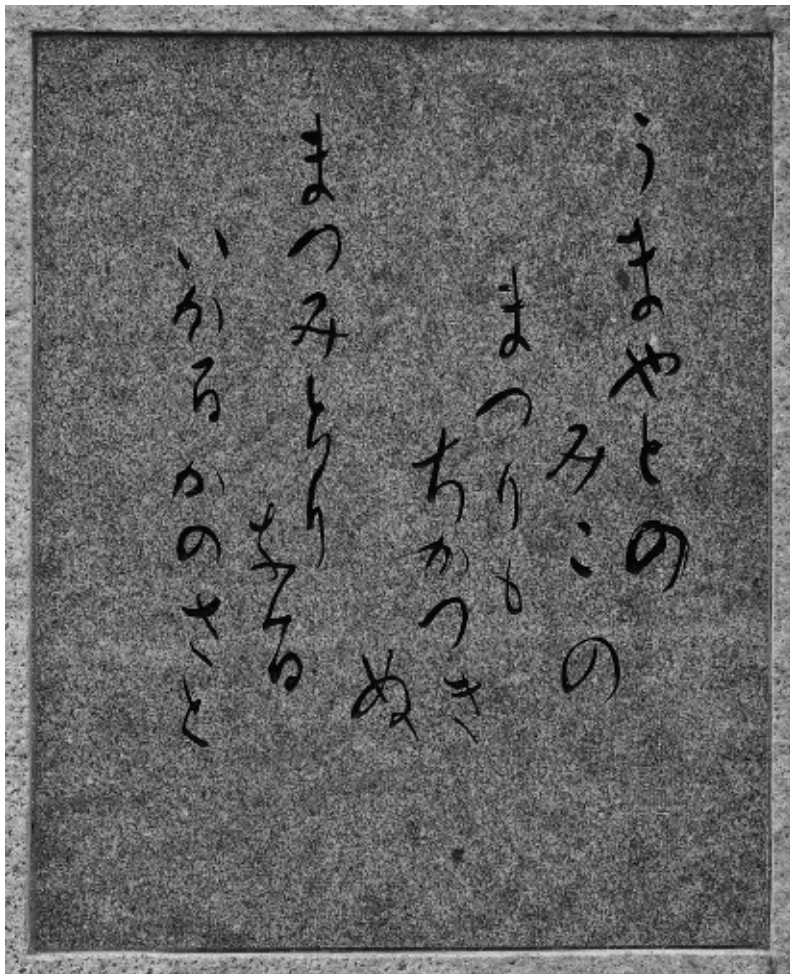 うまやとの
みこの
まつりも
ちかつき
ぬ
まつみとり
なる
いかるかのさと